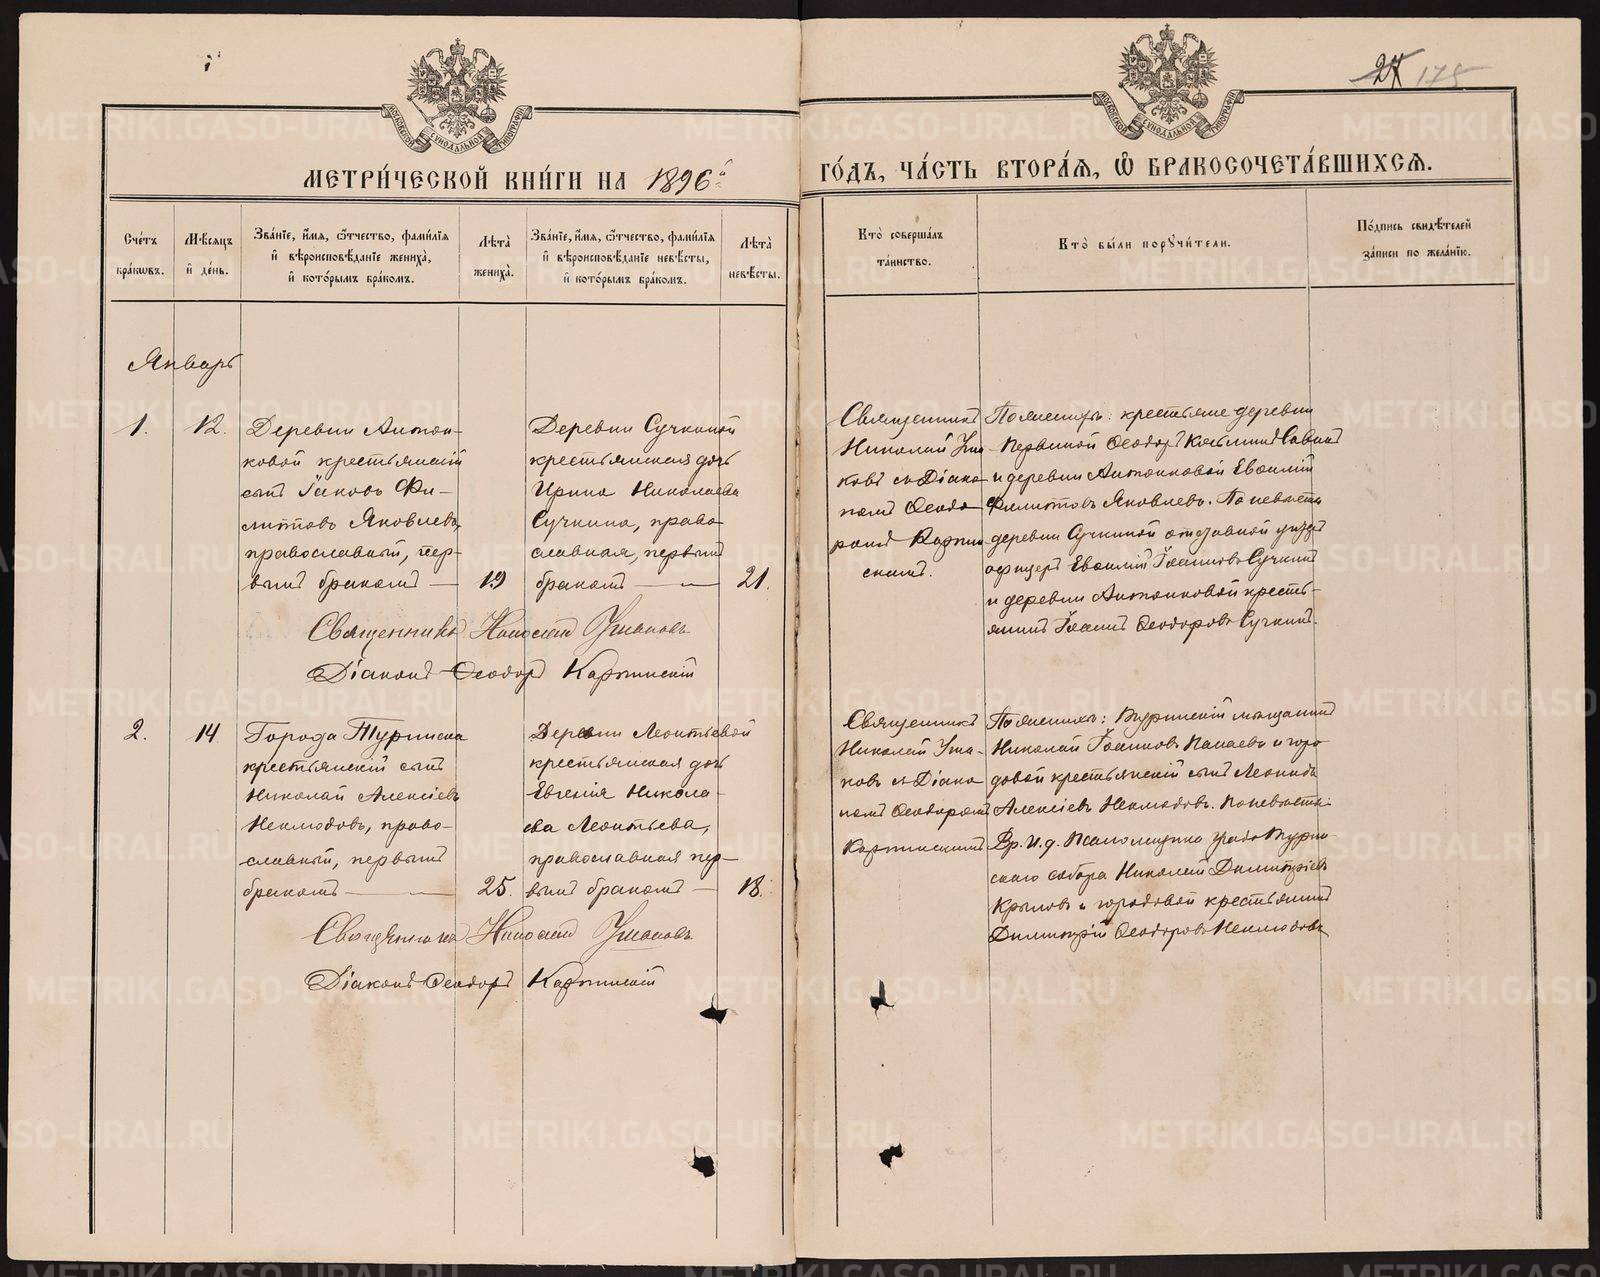 27 175
МОСКОВСКОЙ СУНОДАЛЬНОЙ ТИПОГРАФІИ
МОСКОВСКОЙ СУНОДАЛЬНОЙ ТИПОГРАФІИ
МЕТРИ́ЧЕСКОЙ КНИ́ГИ НА 1896й
ГО́ДЪ, ЧА́СТЬ ВТОРА́Я, Ѡ БРАКОСОЧЕТА́ВШИХСЯ.
Сче́тъ бра́кѡвъ.
Мѣ́сяцъ и де́нь.
Зва́нїе, и́мя, ѻ́тчество, фами́лїя
и вѣроисповѣ́данїе жениха̀,
и кото́рымъ бра́комъ.
Лѣта̀ жениха̀.
Зва́нїе, и́мя, ѻ́тчество, фами́лїя
и вѣроисповѣ́данїе невѣ́сты,
и кото́рымъ бра́комъ.
Лѣта̀ невѣ́сты.
Кто̀ соверша́лъ
та́инство.
Кто̀ бы́ли порꙋчи́тели.
По́дпись свидѣ́телей
за́писи по жела́нїю.
Январь
1.
12.
Деревни Антон-
ковой крестьянскій
сынъ Іаковъ Фи-
липповъ Яковлевъ,
православный, пер-
вымъ бракомъ —
19
Деревни Сучкиной
крестьянская дочь
Ирина Николаева
Сучкина, право-
славная, первымъ
бракомъ —
21.
Священникъ
Николай Уша-
ковъ съ Діако-
номъ Ѳеодо-
ромъ Карпин-
скимъ.
По женихѣ: крестьяне деревни
Ѳеодоръ Козьминъ Савинъ
и деревни Антонковой Евсигній
Филипповъ Яковлевъ. По невѣстѣ
деревни Сучкиной отставной унтеръ
офицеръ Евсигній Іоанновъ Сучкинъ
и деревни Антонковой кресть-
янинъ Іоаннъ Ѳеодоровъ Сучкинъ.
Священникъ Николай Ушаковъ
Діаконъ Ѳеодоръ Карпинскій
2.
14
Города Туринска
крестьянскій сынъ
Николай Алексіевъ
Неклюдовъ, право-
славный, первымъ
бракомъ —
25.
Деревни Леонтьевой
крестьянская дочь
Евгенія Никола-
ева Леонтьева,
православная пер-
вымъ бракомъ —
18.
Священникъ
Николай Уша-
ковъ съ Діако-
номъ Ѳеодоромъ
Карпинскимъ
По женихѣ: Туринскій мѣщанинъ
Николай Іоанновъ Панаевъ и горо-
довой крестьянскій сынъ Леонидъ
Алексіевъ Неклюдовъ. По невѣстѣ:
Вр. И. д. Псаломщика градо Турин-
скаго собора Николай Димитріевъ
Крыловъ и городовой крестьянинъ
Димитрій Ѳеодоровъ Неклюдовъ
Священникъ Николай Ушаковъ
Діаконъ Ѳеодоръ Карпинскій
METRIKI.GASO-URAL.RU